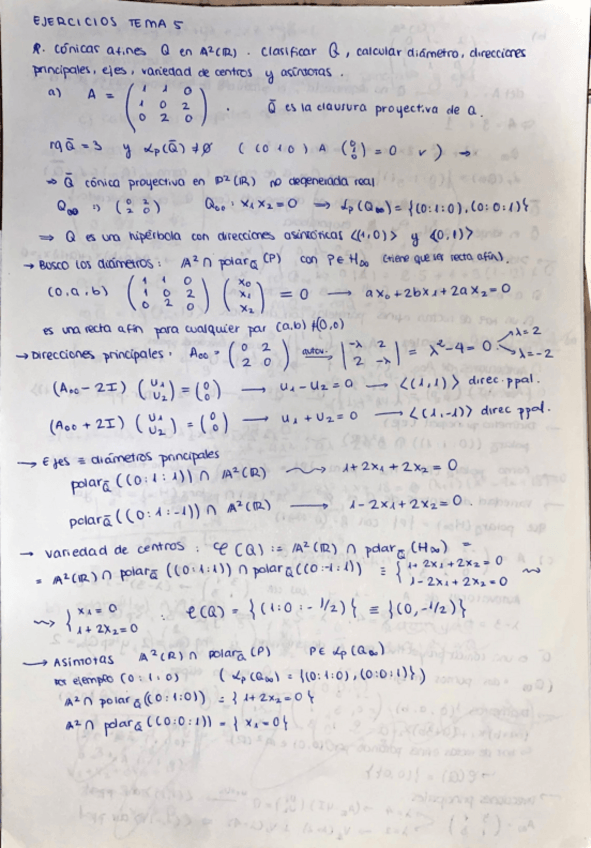 EJERCICIOS TEMA 5
R. cónicas afines Q en A²(R). Clasificar Q, calcular diámetro, direcciones
principales, ejes, variedad de centros y asíntotas.
a) A = ( 1 1 0 / 1 0 2 / 0 2 0 ) . Q̄ es la clausura proyectiva de Q.
rg Q̄ = 3 y 𝓛p(Q̄) ≠ ∅ ( (0 1 0) A (0 1 0) = 0 ✓ ) →
⇒ Q̄ cónica proyectiva en P²(R) no degenerada real
Q∞ ( 0 2 / 2 0 ) Q∞ : x₁x₂ = 0 → 𝓛p(Q∞) = {(0:1:0), (0:0:1)}
⇒ Q es una hipérbola con direcciones asintóticas <(1,0)> y <(0,1)>
→ Busco los diámetros: A² ∩ polar_Q̄(P) con P∈H∞ (tiene que ser recta afín).
(0,a,b) ( 1 1 0 / 1 0 2 / 0 2 0 ) ( x₀ / x₁ / x₂ ) = 0 → ax₀ + 2bx₁ + 2ax₂ = 0
es una recta afín para cualquier par (a,b) ≠ (0,0)
→ Direcciones principales. A∞ = ( 0 2 / 2 0 ) autov. | -λ 2 / 2 -λ | = λ² - 4 = 0 λ = 2 λ = -2
(A∞ - 2I) ( u₁ / u₂ ) = ( 0 / 0 ) → u₁ - u₂ = 0 → <(1,1)> direc. ppal.
(A∞ + 2I) ( u₁ / u₂ ) = ( 0 / 0 ) → u₁ + u₂ = 0 → <(1,-1)> direc ppal.
→ Ejes ≡ diámetros principales
polar_Q̄((0:1:1)) ∩ A²(R) ⇝ 1 + 2x₁ + 2x₂ = 0
polar_Q̄((0:1:-1)) ∩ A²(R) → 1 - 2x₁ + 2x₂ = 0.
→ variedad de centros: 𝒞(Q) := A²(R) ∩ polar_Q̄(H∞) =
= A²(R) ∩ polar_Q̄((0:1:1)) ∩ polar_Q̄((0:-1:1)) ≡ { 1 + 2x₁ + 2x₂ = 0 / 1 - 2x₁ + 2x₂ = 0 ⇝
⇝ { x₁ = 0 / 1 + 2x₂ = 0 : 𝒞(Q) = {(1:0:-1/2)} ≡ {(0,-1/2)}
→ Asimotas A²(R) ∩ polar_Q̄(P) P∈𝓛p(Q∞)
por ejemplo (0:1:0) ( 𝓛p(Q∞) = {(0:1:0), (0:0:1)} )
A² ∩ polar_Q̄((0:1:0)) = {1 + 2x₂ = 0}
A² ∩ polar_Q̄((0:0:1)) = {x₁ = 0}